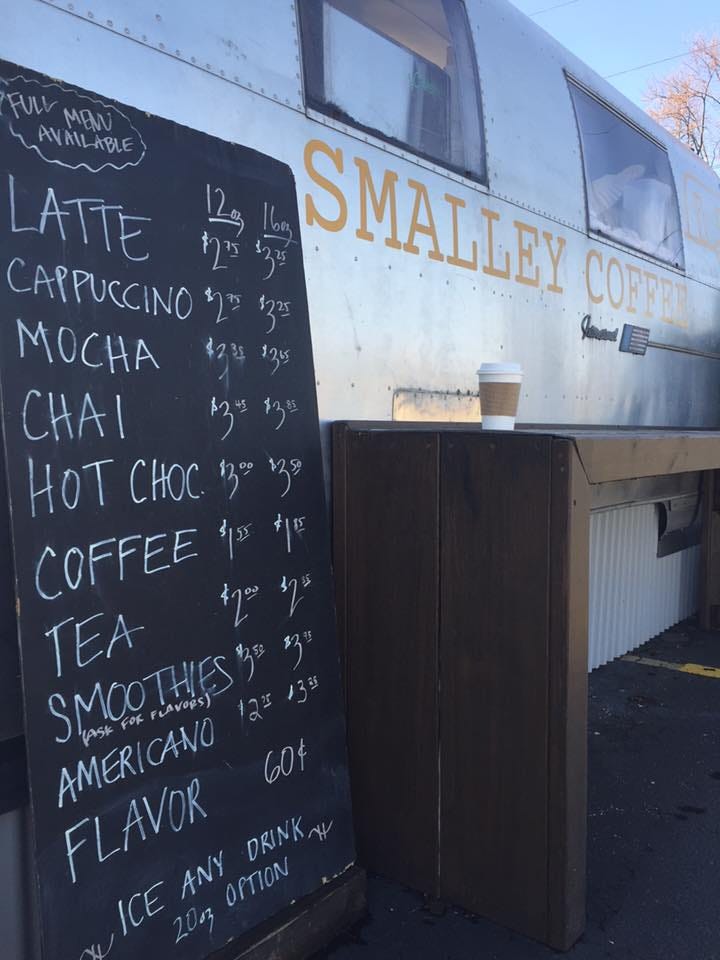 FULL MENU
AVAILABLE
12oz 16oz
LATTE $2.75 $3.25
CAPPUCCINO $2.75 $3.25
MOCHA $3.35 $3.65
CHAI $3.45 $3.85
HOT CHOC. $3.00 $3.50
COFFEE $1.55 $1.85
TEA $2.00 $2.35
SMOOTHIES $3.50 $3.95
(ASK FOR FLAVORS)
AMERICANO $2.25 $3.25
FLAVOR 60¢
ICE ANY DRINK
20oz OPTION
SMALLEY COFFEE